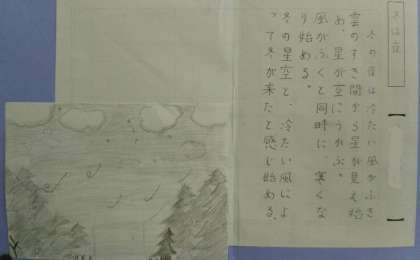 冬は夜
冬の夜は冷たい風がふき
雲のすき間から星が見え始
め、星が空にうかぶ。
風がふくと同時に寒くな
り始める。
冬の星空と、冷たい風によ
って冬が来たと感じ始める。